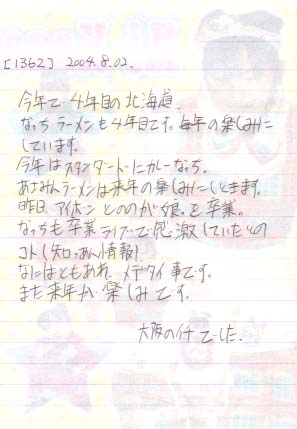 [1362] 2004.8.02.
今年で4年目の北海道、
なっちラーメンも4年目です。毎年の楽しみに
しています。
今年はスタンダードにカレーなっち。
あさみんラーメンは来年の楽しみにしときます。
昨日、アイボンとののが娘。を卒業。
なっちも卒業ライブで感激していたとの
コト(矢口っあん情報)
なにはともあれ、メデタイ事です。
また来年が楽しみです。
大阪のイチでした。